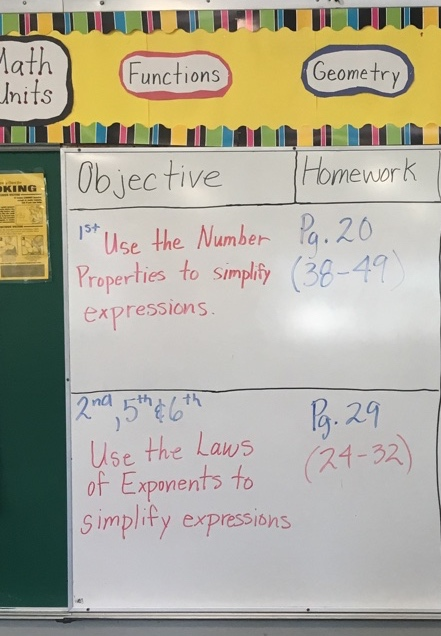 Math
Units
Functions
Geometry
Objective
Homework
KING
1st Use the Number
Properties to simplify
expressions.
Pg. 20
(38-49)
2nd, 5th & 6th
Use the Laws
of Exponents to
simplify expressions
Pg. 29
(24-32)